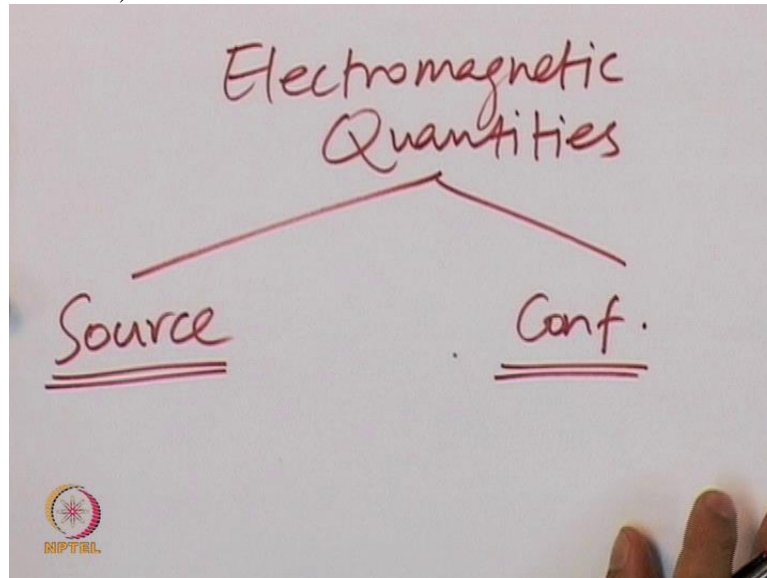 Electromagnetic
Quantities
Source
Conf.
NPTEL